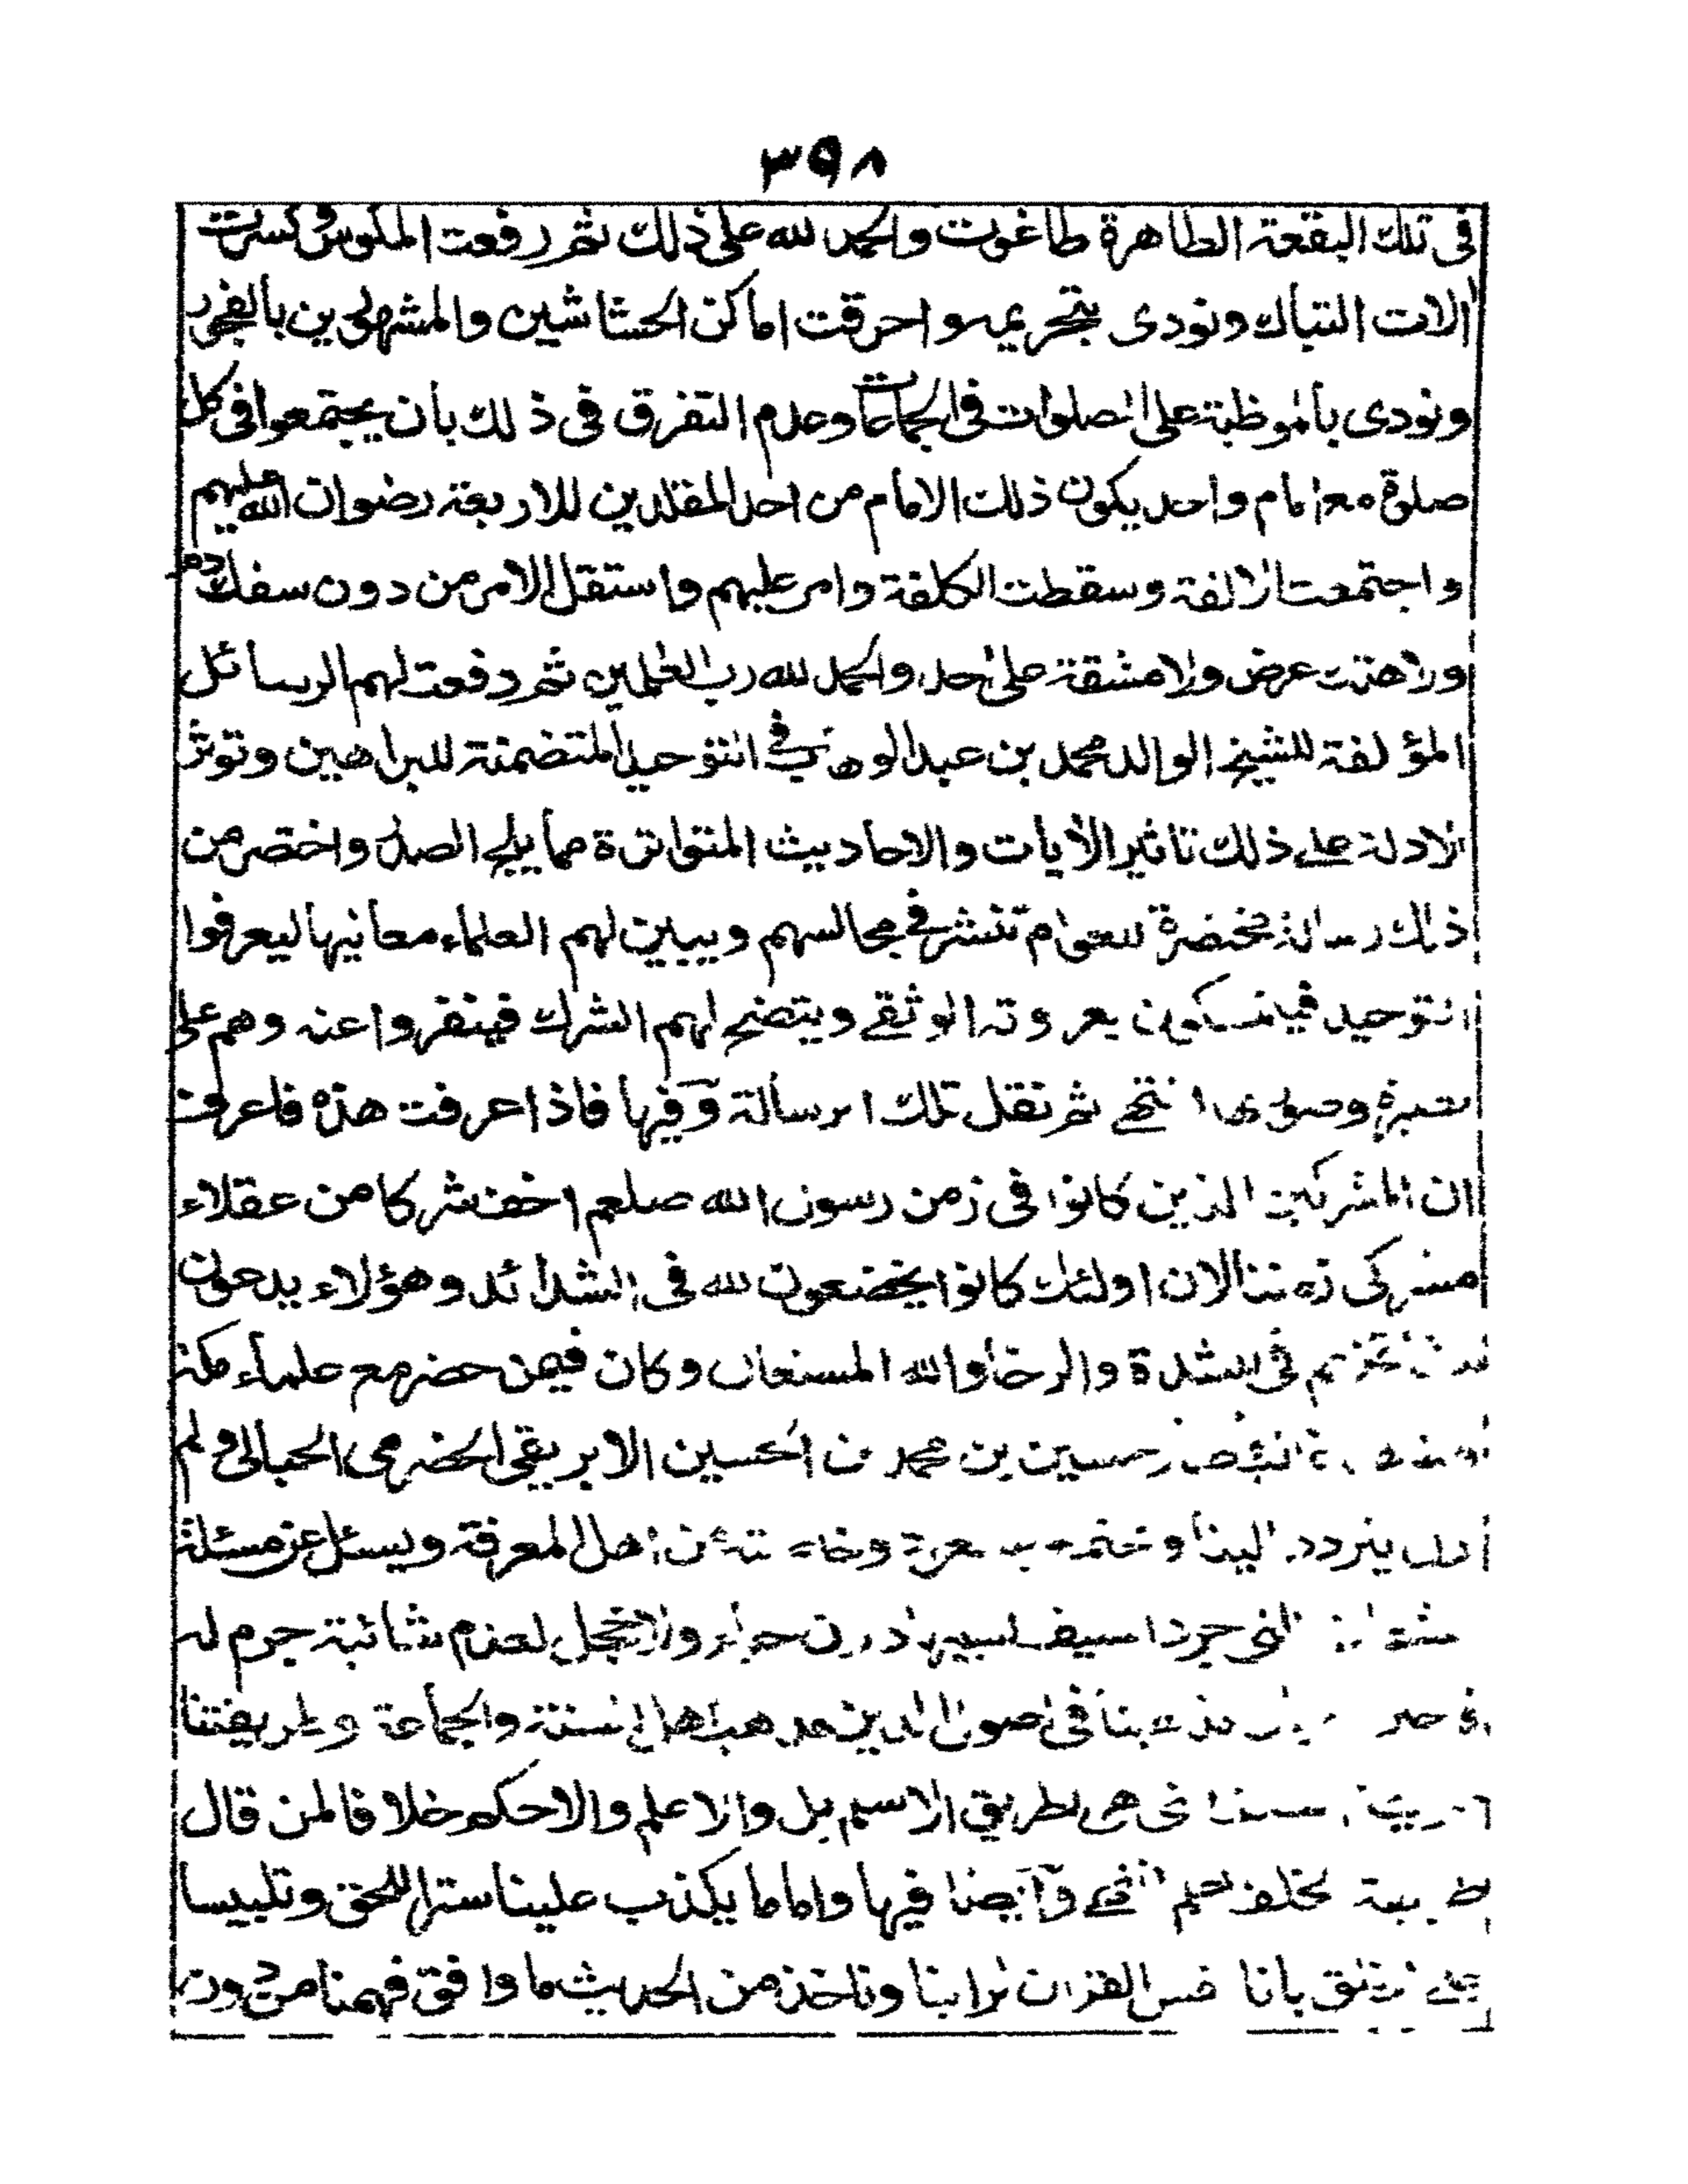 ٣٩٨
فى تلك البقعة الطاهرة طاغوت والحمد لله على ذلك ثم رفعت المكوس وكسرت
الات التنباك ونودى بتحريمه واحرقت اماكن الحشاشين والمشهورين بالفجور
ونودى بالموظبة على الصلوات فى الجماعات وعدم التفرق فى ذلك بان يجتمعوا فى كل
صلوة مع امام واحد يكون ذلك الامام من احد المقلدين للاربعة رضوان الله عليهم
واجتمعت الالفة وسقطت الكلفة وامر عليهم واستقل الامر من دون سفك دم
ولا هتك عرض ولا مشقة على احد والحمد لله رب العلمين ثم دفعت لهم الرسائل
المؤلفة للشيخ الوالد محمد بن عبد الوهاب فى التوحيد المتضمنة للبراهين وتوثر
الادلة على ذلك تاثير الأيات والاحاديث المتواترة مما يثلج الصدر واختصر من
ذلك رسالة مختصرة للعوام تنشر فى مجالسهم ويبين لهم العلماء معانيها ليعرفوا
التوحيد فيتمسكون بعروته الوثقى ويتضح لهم الشرك فينفروا عنه وهم على
بصيرة انتهى ثم نقل تلك الرسالة وفيها فاذا عرفت هذه فاعرف
ان المشركين الذين كانوا فى زمن رسول الله صلعم اخف شركا من عقلاء
مشركى زمننا الان اولئك كانوا يخضعون لله فى الشدائد وهؤلاء يدعون
فى الشدة والرخا والله المستعان وكان فيمن حضر مع علماء مكة
حسين بن محمد بن الحسين الابريقى الحضرمى الحبالى ولم
يزل يتردد الينا اهل المعرفة ويسئل عن مسئلة
التى جرد السيف لسببها دون ولا خجل لعدم شائبة جرم له
مذهبنا فى اصول الدين مذهب اهل السنة والجماعة وطريقتنا
هى الطريق الاسلم بل والاعلم والاحكم خلافا لمن قال
انتهى وايضا فيها واما ما يكذب علينا سترا للحق وتلبيسا
على الخلق بانا نفسر القران براينا وناخذ من الحديث ما وافق فهمنا من دون